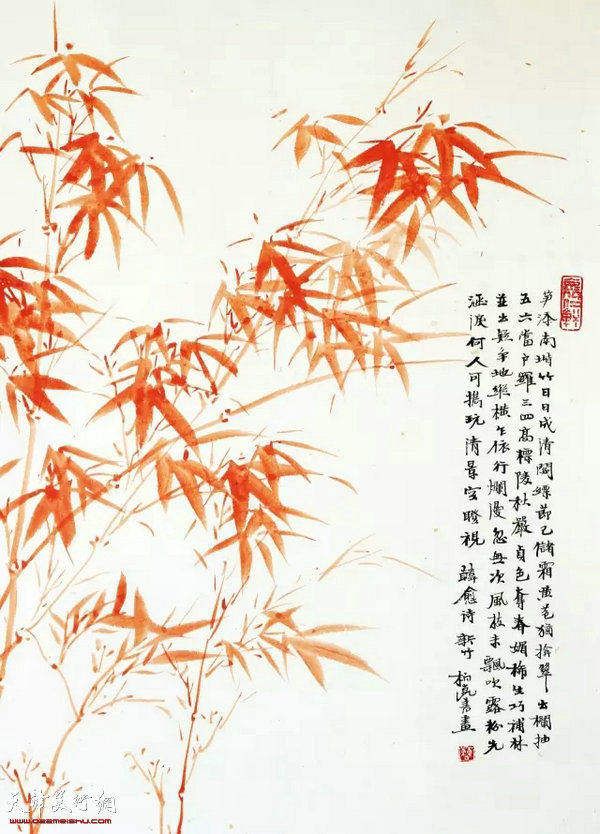 笋添南階竹日日成清閟縹節已儲霜黄苞猶揜翠出欄抽
五六當户羅三四高標陵秋嚴貞色奪春媚稀生巧補林
並出疑爭地縱橫乍依行爛漫忽無次風枝未飄吹露粉先
涵淚何人可攜玩清景空瞪視 韓愈诗 新竹
畫
天津美術網
www.026meishu.com